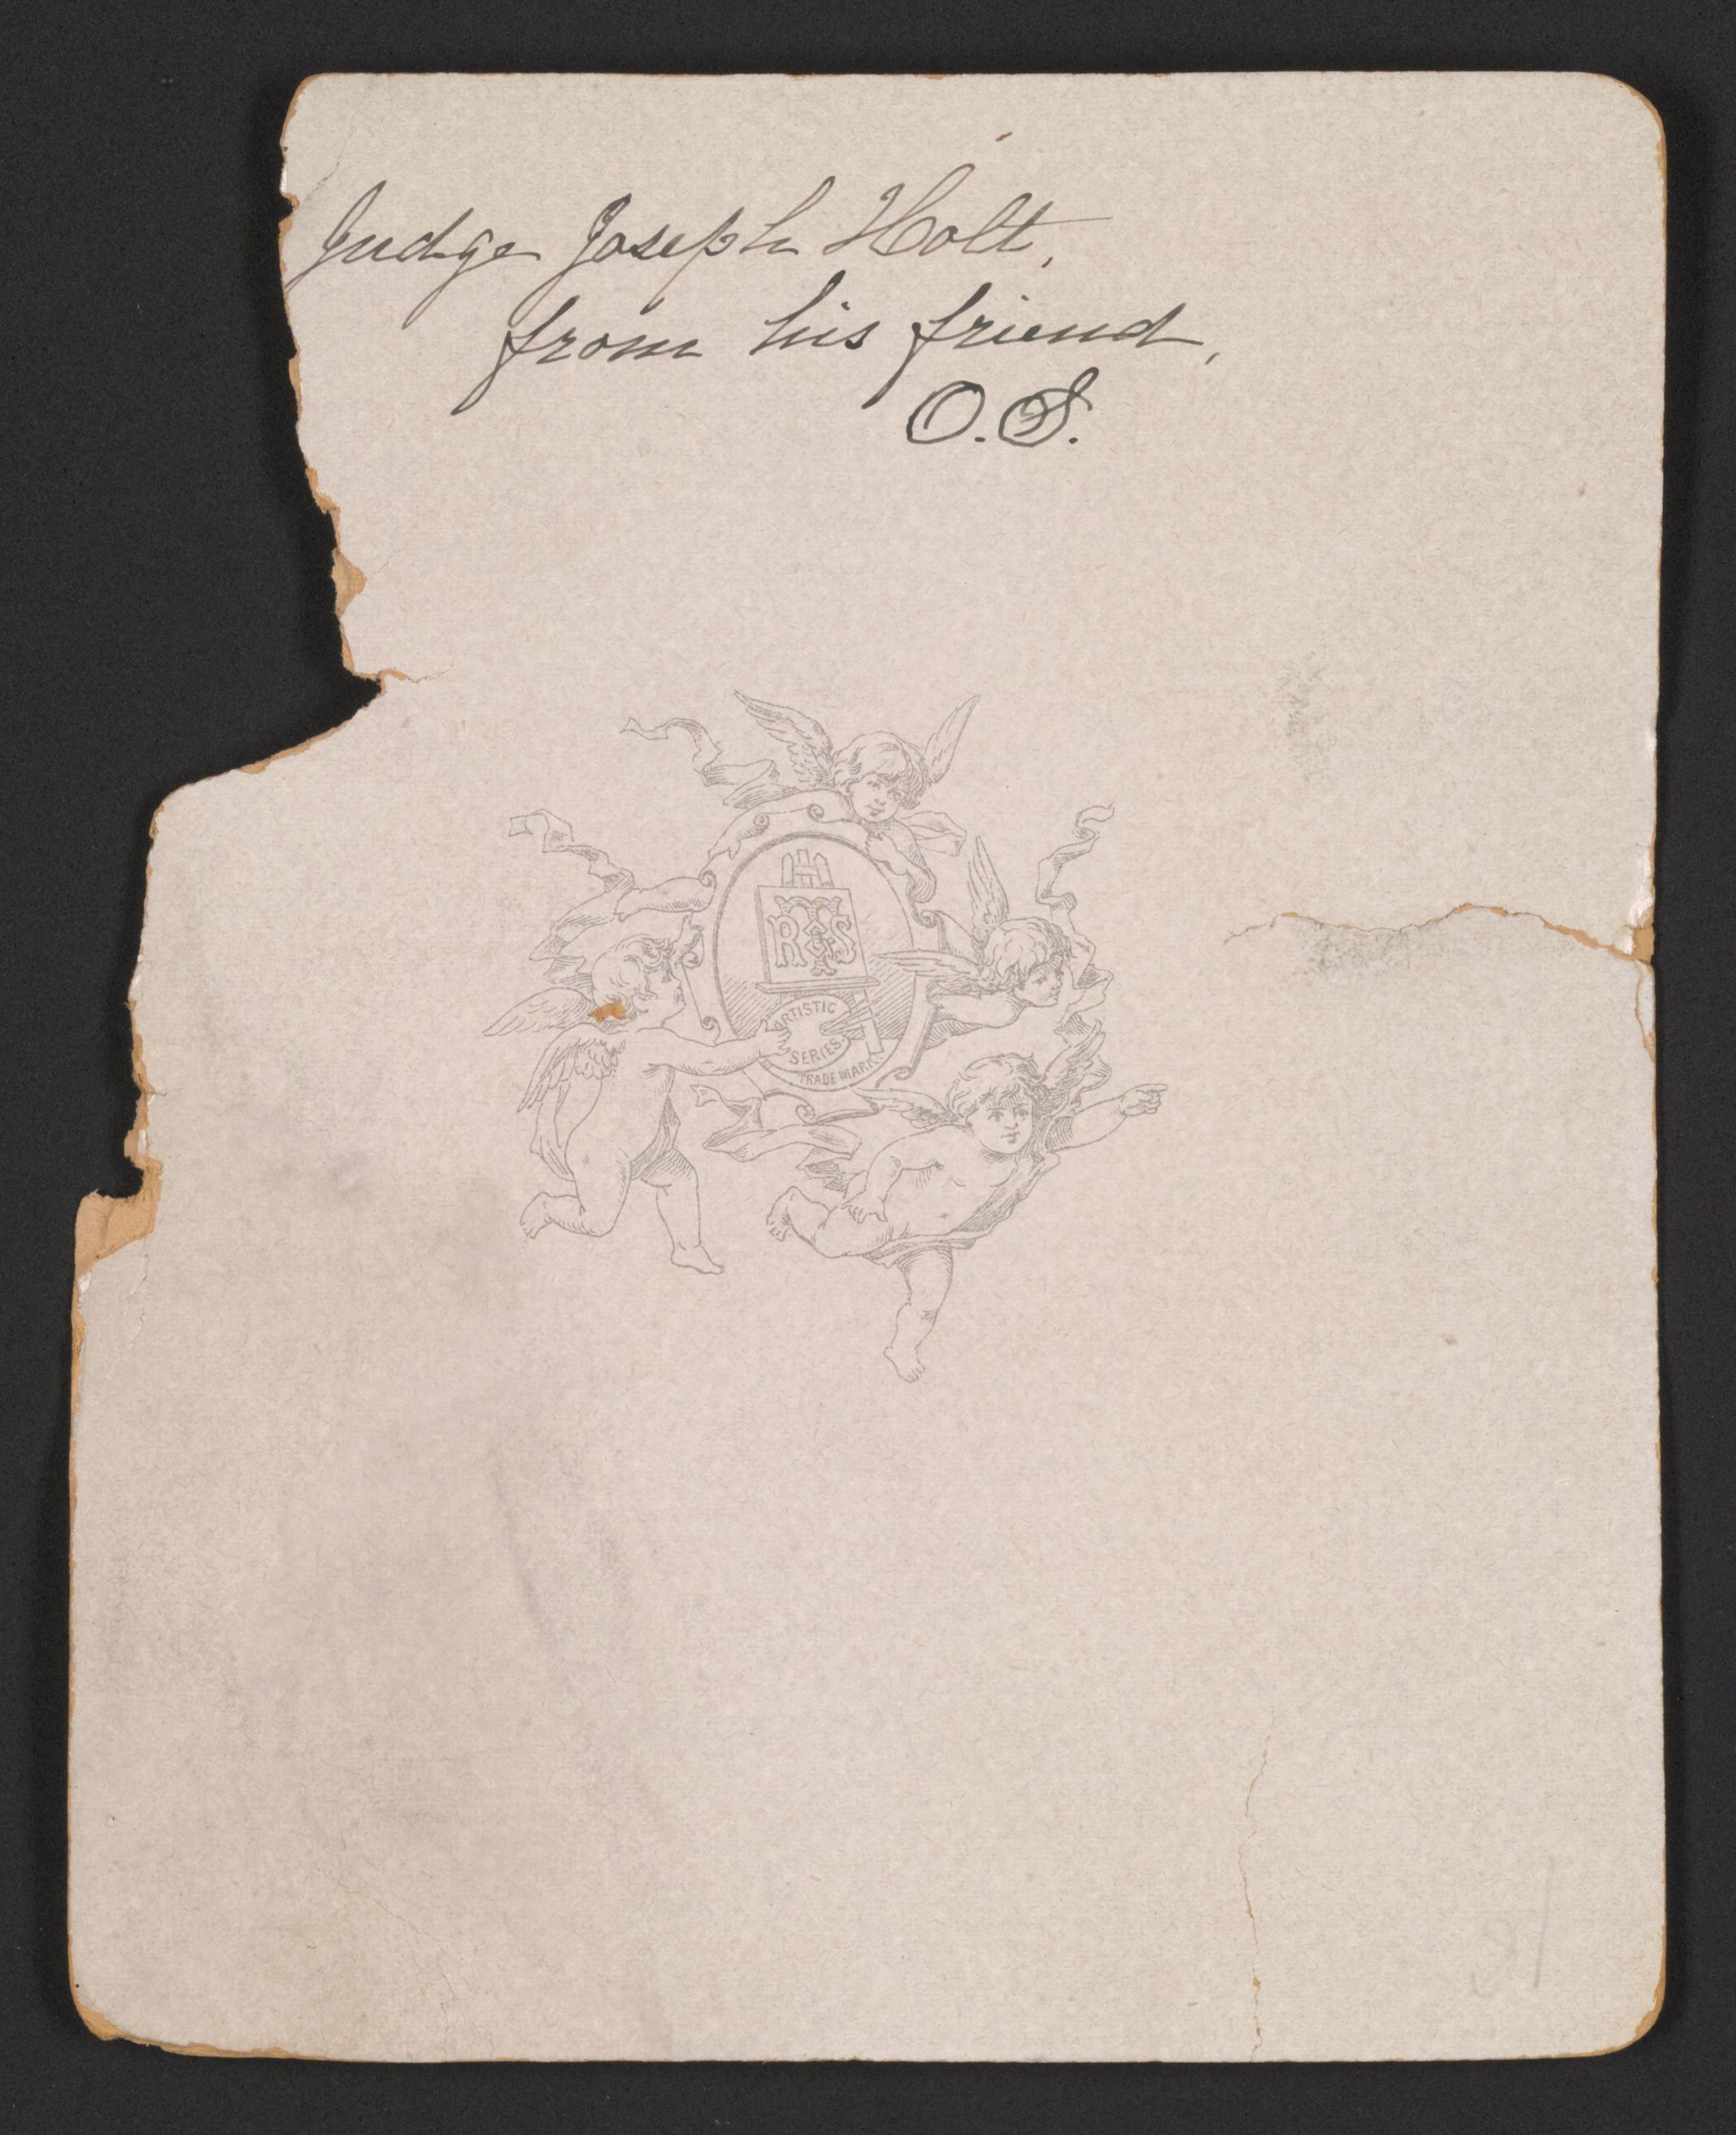 Judge Joseph Holt,
from his friend,
O.S.
RTS
&
ARTISTIC
SERIES
TRADE MARK